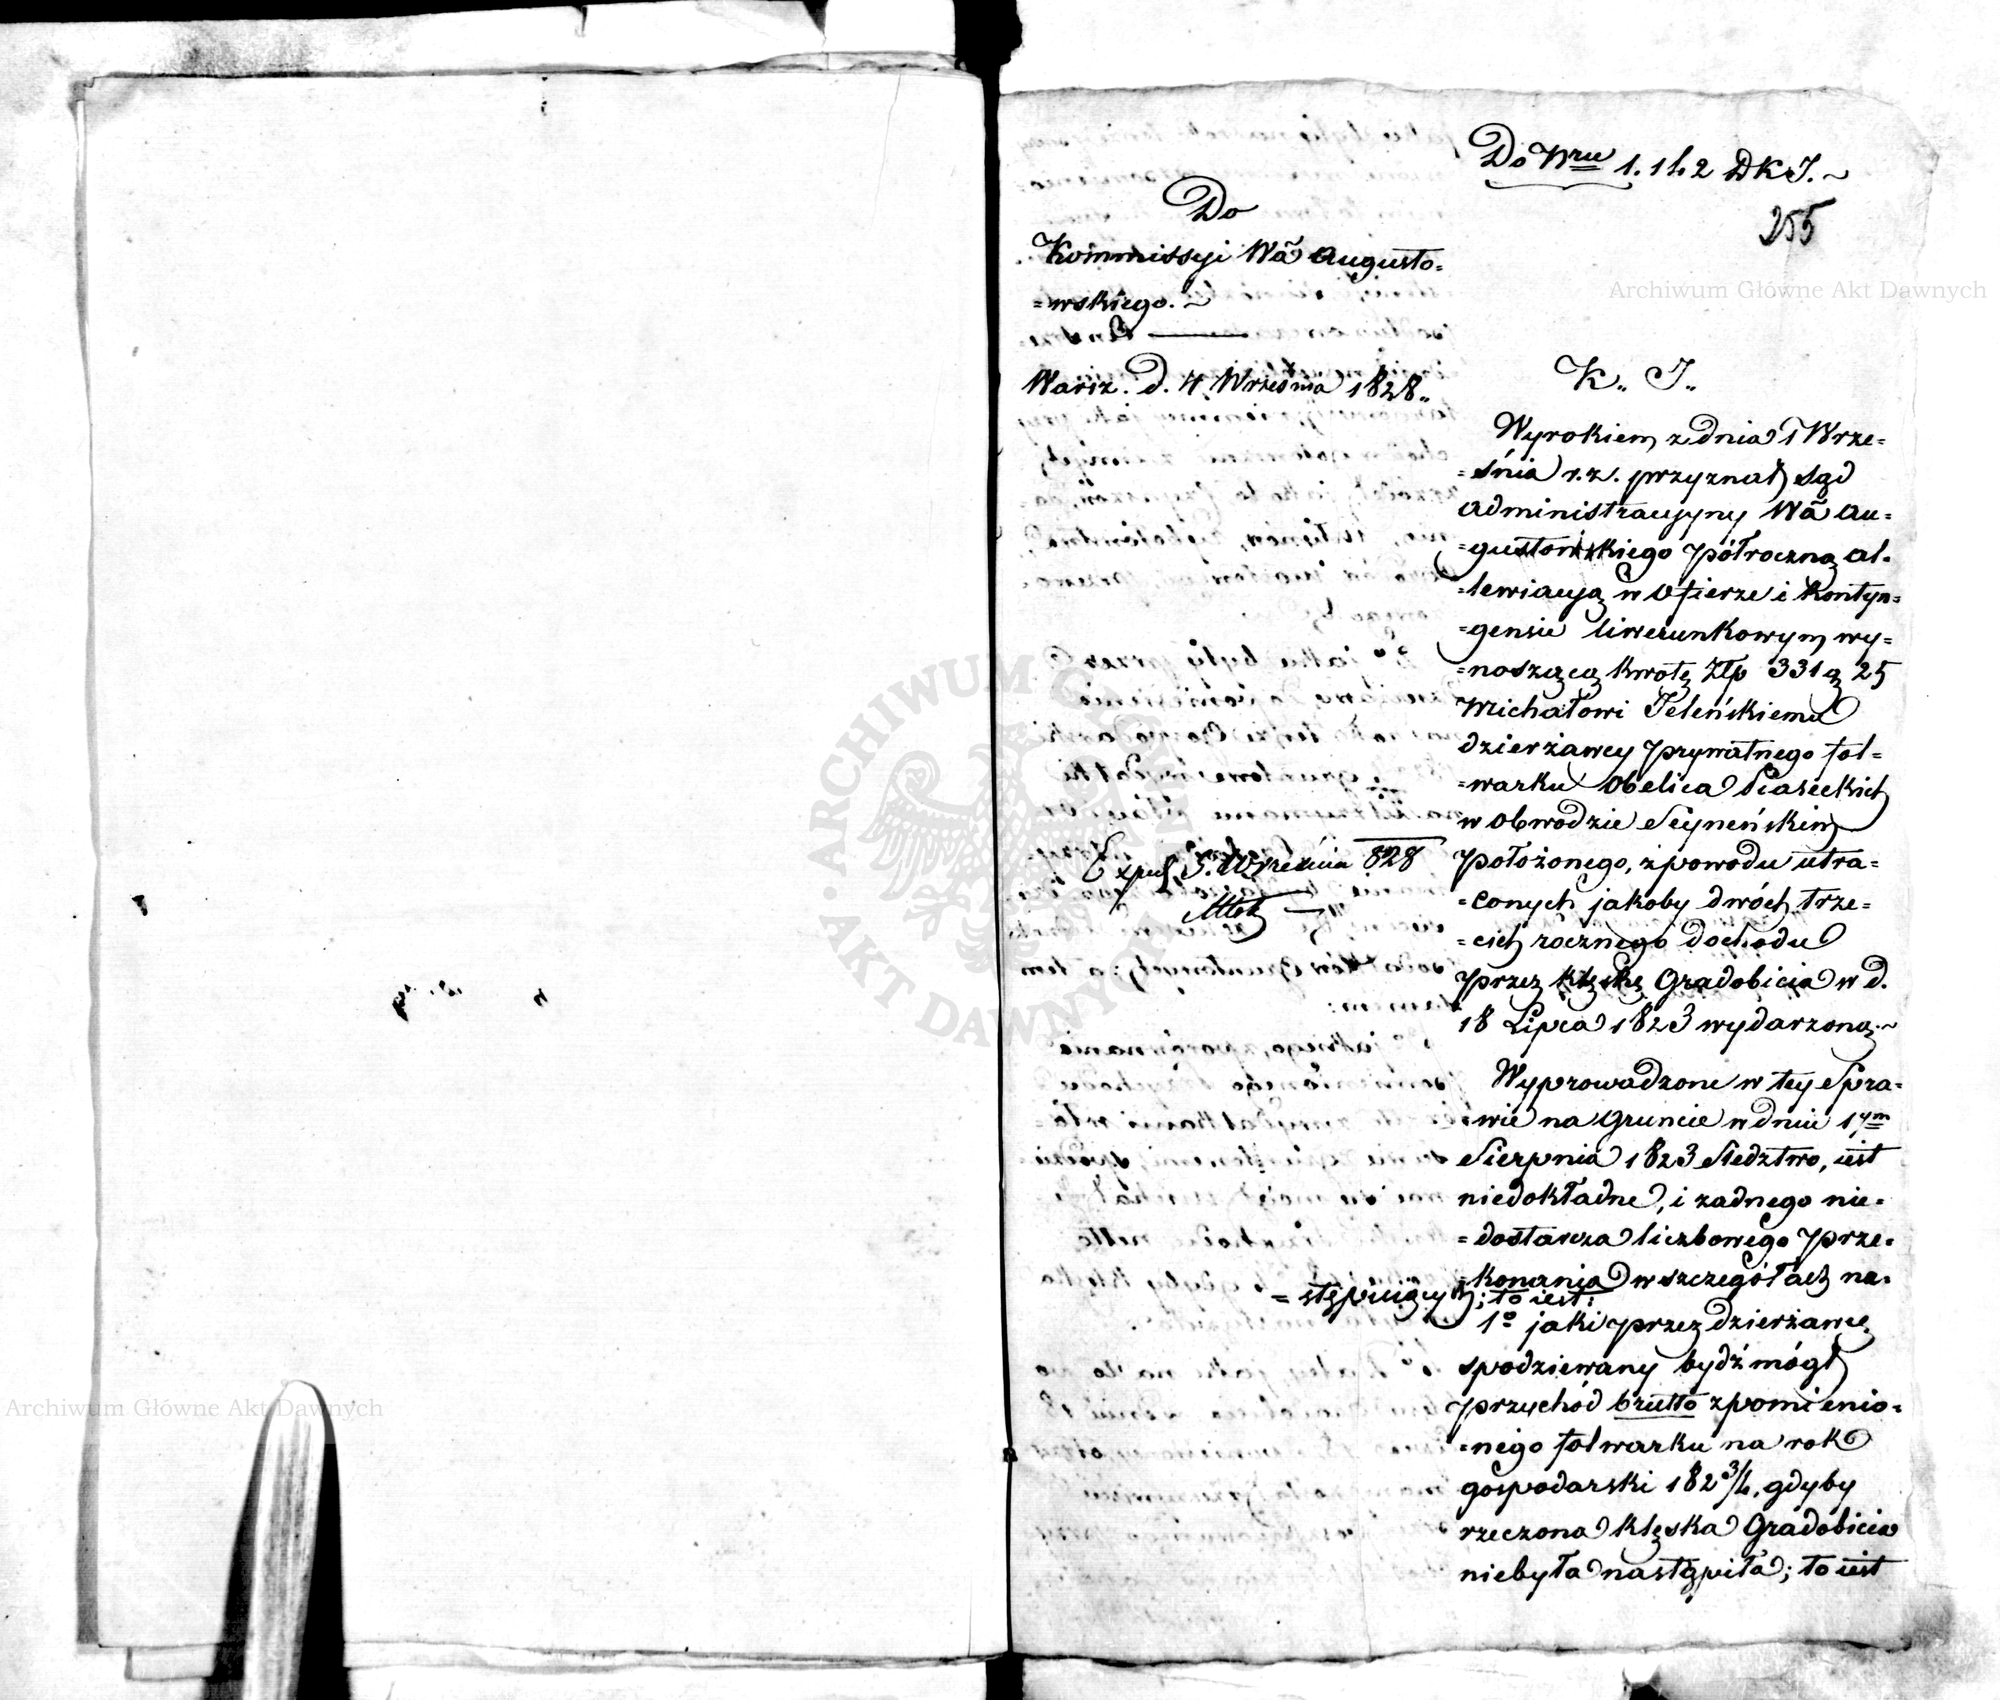 Do Nru 1.142 DKJ.~
255
Do
Kommissyi Wa Augusto=
=wskiego.~
Warsz. d. 4 Września 1828.
Exped. 5. Września 828
K.. J..
Wyrokiem z dnia 1 Wrze=
=śnia r.z. przyznał Sąd
Administracyjny Wa Au=
=gustowskiego półroczną al=
=lewiacją w Ofierze i Kontyn=
=gensie liwerunkowym wy=
=noszącą kwotę Złp 331 g 25
Michałowi Jeleńskiemu
dzierżawcy prywatnego fol=
=warku Obelica Piaseckich
w Obwodzie Seyneńskim
położonego, z powodu utra=
=conych jakoby dwóch trze=
=cich rocznego dochodu
przez klęskę Gradobicia w d.
18 Lipca 1823 wydarzoną.~
Wyprowadzone w tey Spra=
=wie na Gruncie w dniu 17m
Sierpnia 1823 Śledztwo, iest
niedokładne, i żadnego nie=
=dostarcza liczbowego prze=
=konania w szczegółach na=
=stępuiących; to iest:
1o jaki przez dzierżawcę
spodziewany bydź mógł
przychód brutto z pomienio=
=nego folwarku na rok
gospodarski 1823/4, gdyby
rzeczona klęska Gradobicia
niebyła nastąpiła; to iest
Archiwum Główne Akt Dawnych
Archiwum Główne Akt Dawnych
ARCHIWUM GŁÓWNE AKT DAWNYCH